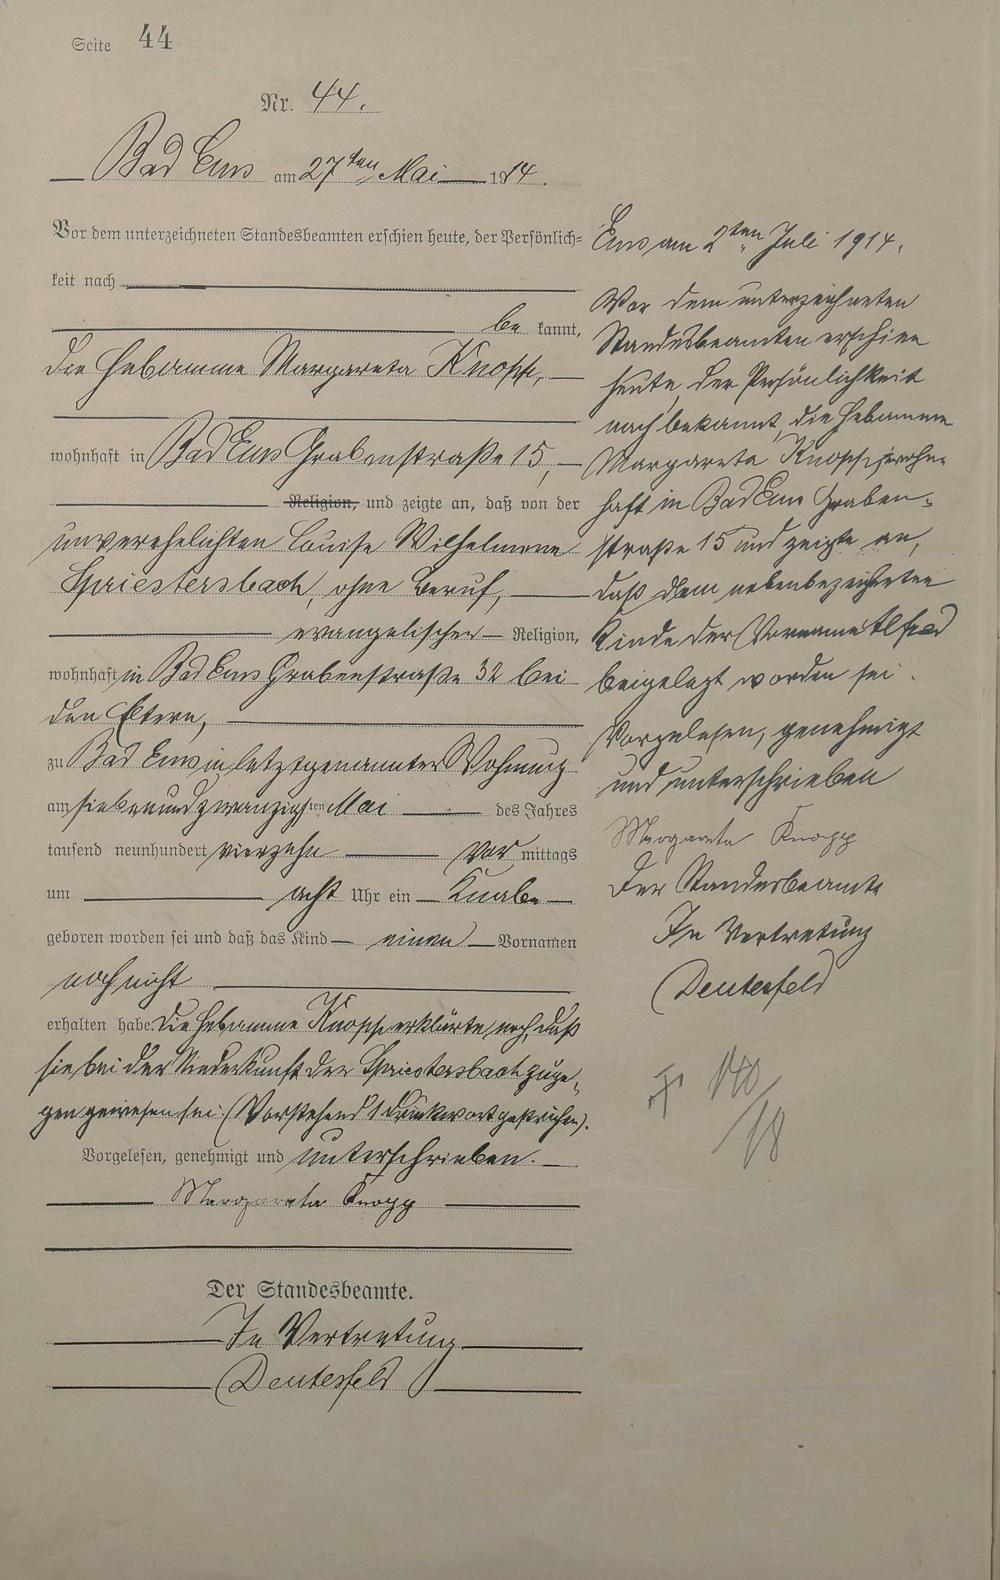 Seite 44
Nr. 44.
Bad Ems am 27ten Mai 1914.
Vor dem unterzeichneten Standesbeamten erschien heute, der Persönlich-
keit nach
be kannt,
die Hebamme Margareta Knopp,
wohnhaft in Bad Ems Grabenstraße 15,
Religion, und zeigte an, daß von der
unverehelichten Louise Wilhelmine
Spriestersbach, ohne Beruf,
evangelischer Religion,
wohnhaft in Bad Ems Grabenstraße 32 bei
den Eltern,
zu Bad Ems in letztgenannter Wohnung
am siebenundzwanzigsten Mai des Jahres
tausend neunhundert vierzehn Vor mittags
um acht Uhr ein Knabe
geboren worden sei und daß das Kind einen Vornamen
noch nicht
erhalten habe. Die Hebamme Knopp erklärte noch, daß
sie bei der Niederkunft der Spriestersbach zuge-
gen gewesen sei. (Vorstehend 1 Druckwort gestrichen).
Vorgelesen, genehmigt und unterschrieben.
Margareta Knopp
Der Standesbeamte.
In Vertretung
Deutesfeld
Ems am 2ten Juli 1914.
Vor dem unterzeichneten
Standesbeamten erschien
heute, der Persönlichkeit
nach bekannt, die Hebamme
Margareta Knopp, wohn-
haft in Bad Ems Graben-
straße 15 und zeigte an,
daß dem nebenbezeichneten
Kinde der Vorname Alfred
beigelegt worden sei.
Vorgelesen, genehmigt
und unterschrieben
Margareta Knopp
Der Standesbeamte
In Vertretung
Deutesfeld
140/18